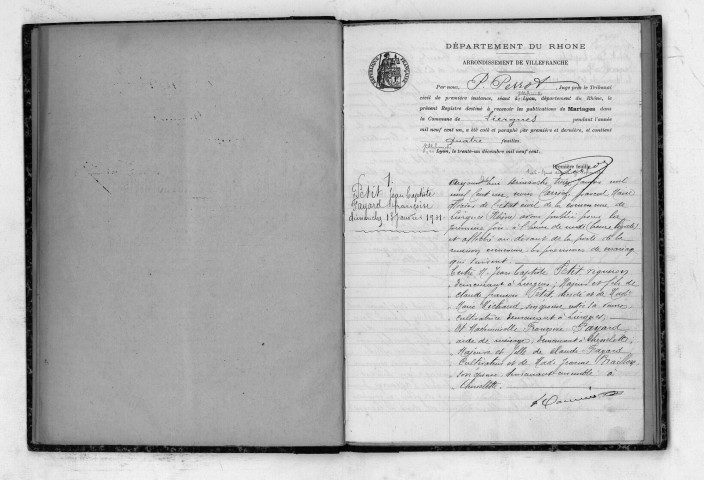 DÉPARTEMENT DU RHONE
ARRONDISSEMENT DE VILLEFRANCHE
RÉPUBLIQUE FRANÇAISE
Par nous, P. Perrot, Juge près le Tribunal
civil de première instance, séant à Lyon, département du Rhône, le
présent Registre destiné à recevoir les publications de Mariages dans
la Commune de Liergues pendant l'année
mil neuf cent un, a été coté et paraphé par première et dernière, et contient
quatre feuilles
Lyon, le trente-un décembre mil neuf cent.
Première feuille
1.
Petit Jean Baptiste
Fayard Françoise
dimanche 13 janvier 1901
Aujourd'hui dimanche treize janvier mil
neuf cent un, nous Maire
de l'état civil de la commune de
Liergues Rhône avons publié pour la
première fois à l'heure de midi
et affiché au devant de la porte de la
maison commune les promesses de mariage
qui suivent.
Entre M. Jean Baptiste Petit, vigneron
demeurant à Liergues, Majeur et fils de
claude françois Petit, décédé et de
Marie son épouse, sa veuve
Cultivatrice demeurant à Liergues,
Et Mademoiselle Françoise Fayard
aide de ménage, demeurant à Chénelette
Majeure et fille de claude Fayard
Cultivateur et de Mad. Jeanne
son épouse demeurant ensemble à
Chénelette